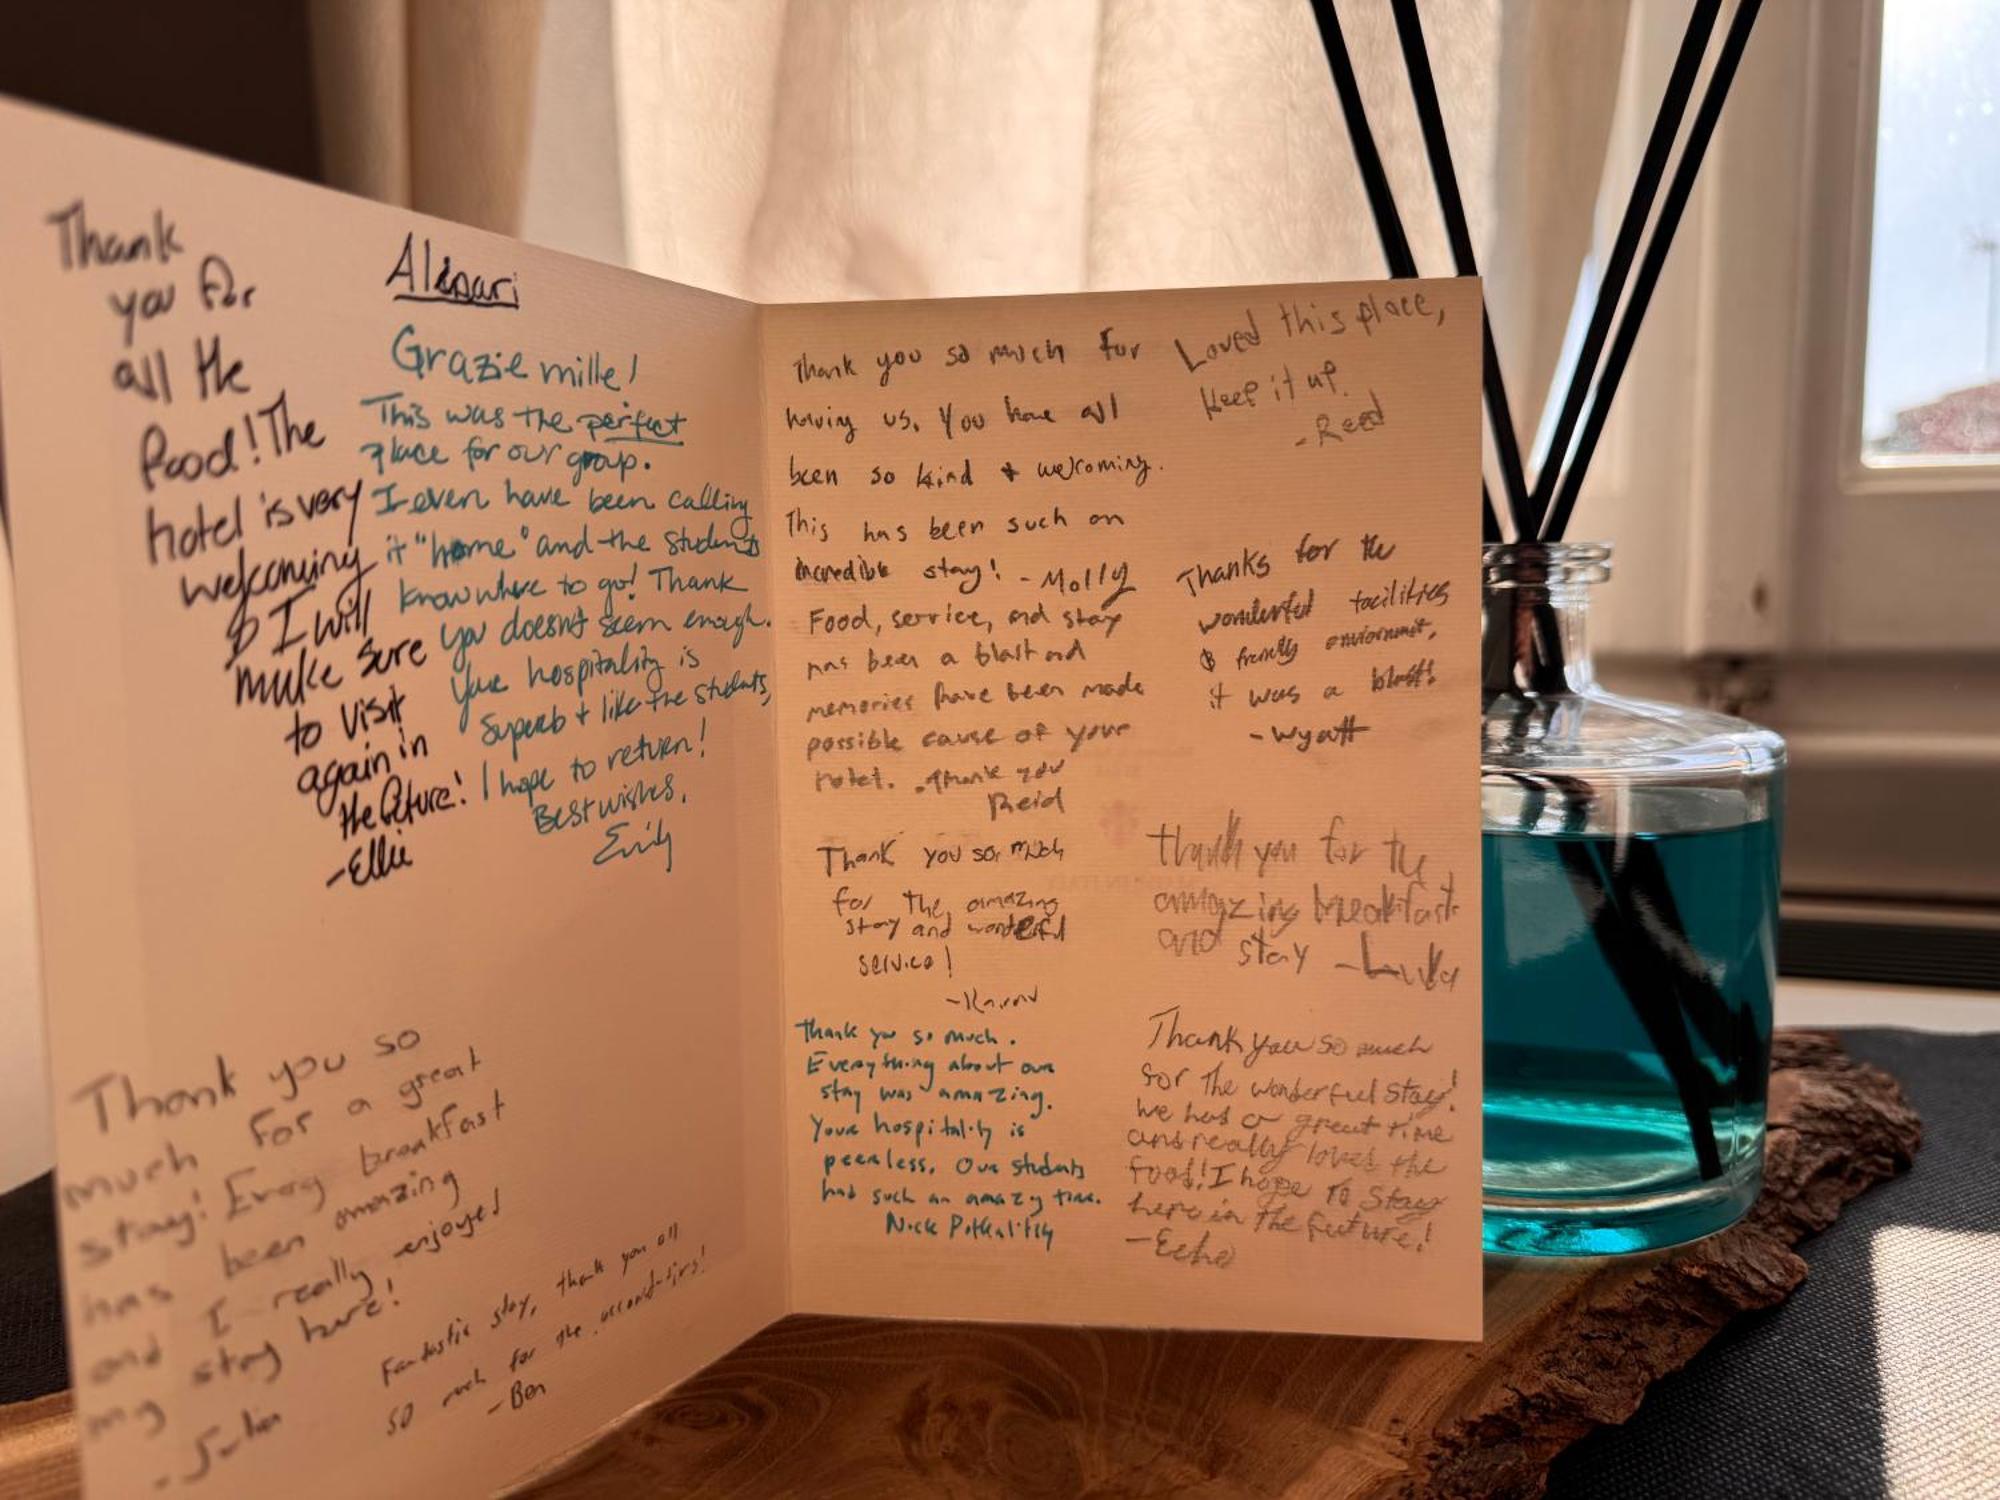 Thank
you for
all the
food! The
hotel is very
welcoming
& I will
make sure
to visit
again in
the future!
-Ellie
Grazie mille!
This was the perfect
place for our group.
I even have been calling
it "home" and the students
know where to go! Thank
you doesn't seem enough.
Your hospitality is
superb + like the students,
I hope to return!
Best wishes,
Emily
Thank you so
much for a great
stay! Every breakfast
has been amazing
and I really enjoyed
my stay here!
Fantastic stay, thank you all
so much for the
-Ben
Thank you so much for
having us. You have all
been so kind + welcoming.
This has been such an
incredible stay! -Molly
Food, service, and stay
has been a blast and
memories have been made
possible cause of your
hotel. Thank you
Reid
Thank you so much
for the amazing
stay and wonderful
service!
Thank you so much.
Everything about our
stay was amazing.
Your hospitality is
peerless. Our students
had such an amazing time.
Nick
Loved this place,
Keep it up.
-Reed
Thanks for the
wonderful facilities
& friendly enviornment,
it was a blast!
-Wyatt
thank you for the
amazing breakfast
and stay -Luka
Thank you so much
for the wonderful stay!
We had a great time
and really loved the
food! I hope to stay
here in the future!
-Echo